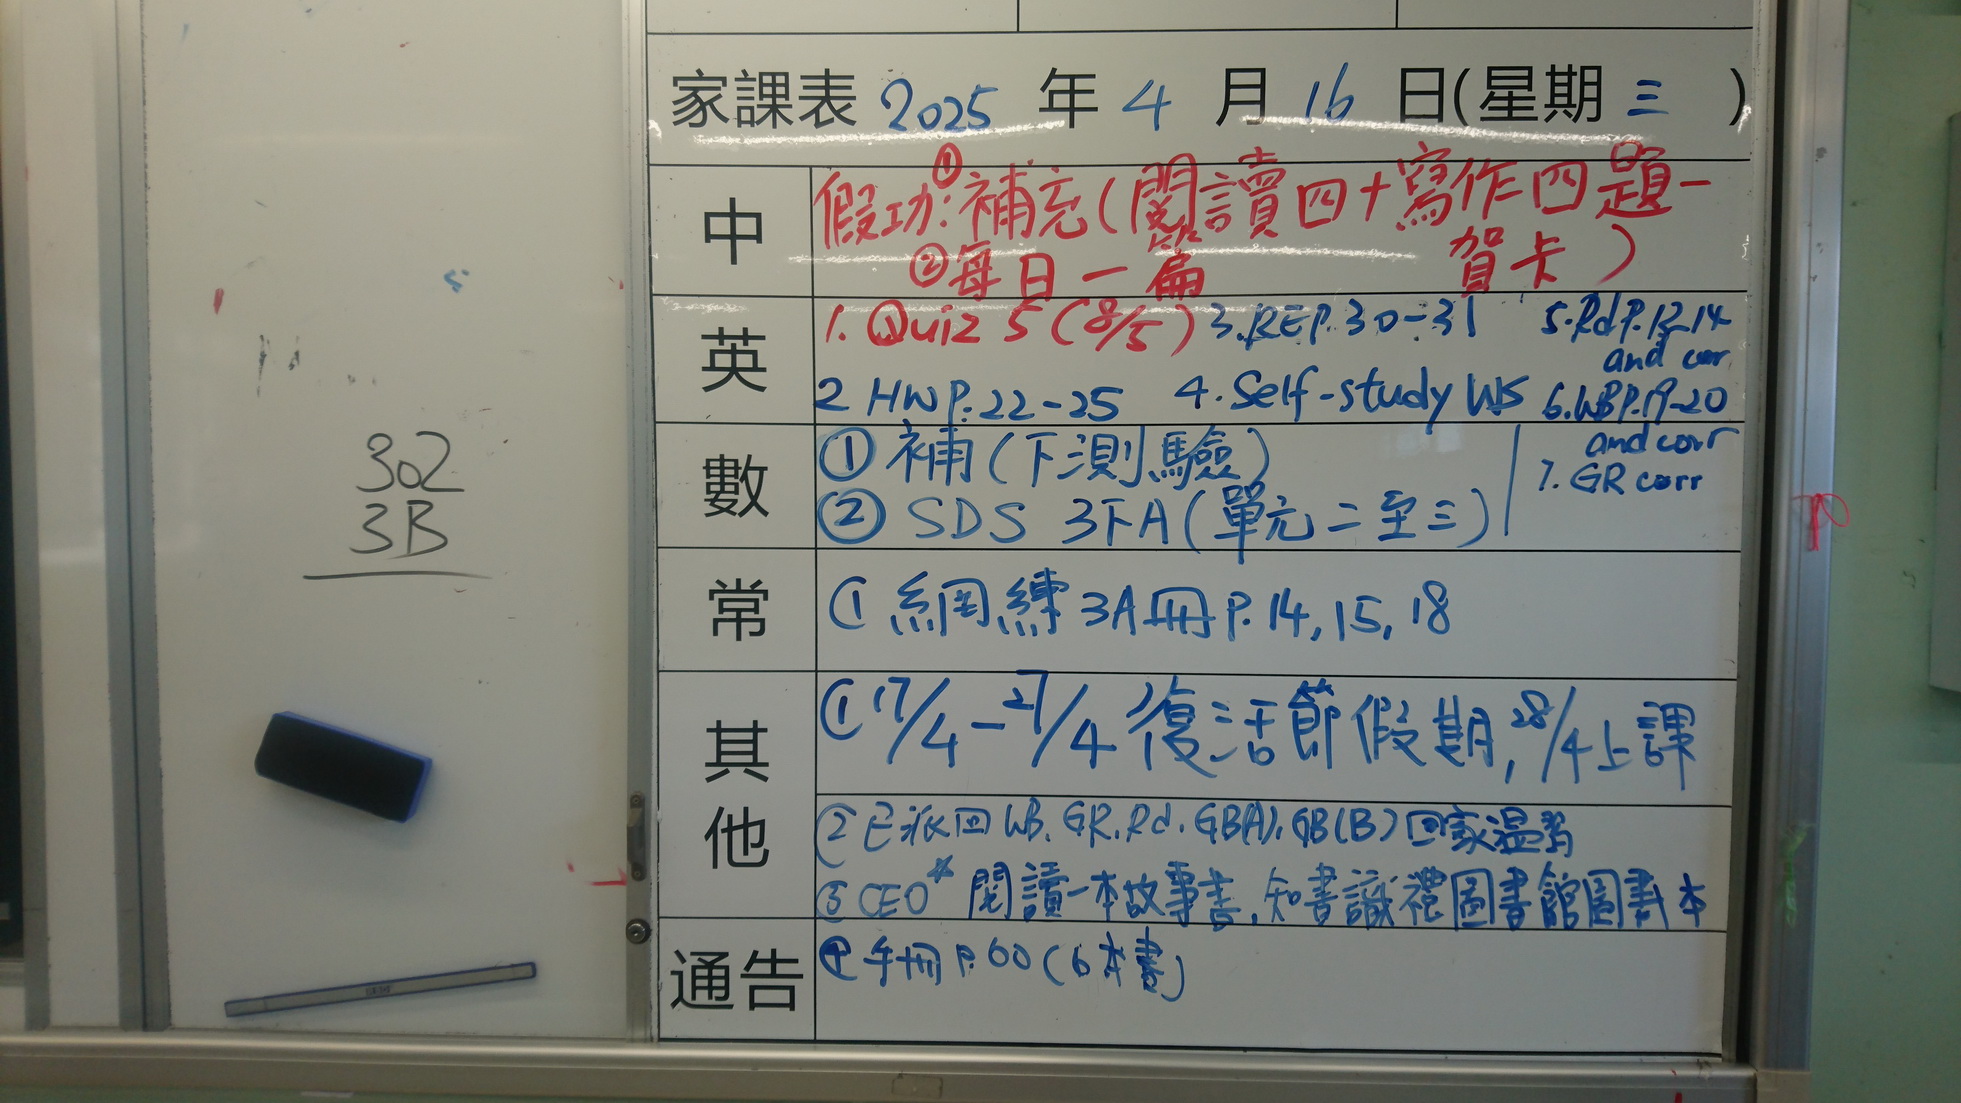 家課表 2025 年 4 月 16 日(星期 三 )
中
假功:①補充(閱讀四+寫作四題-
賀卡)
②每日一篇
英
1. Quiz 5 (8/5)
2 HW P.22-25
3. REP. 30-31
4. Self-study WS
5. Rd P.13-14
and corr
6. WB P.19-20
and corr
7. GR corr
數
① 補(下測驗)
② SDS 3下A(單元二至三)
常
① 網練 3A冊 P.14, 15, 18
其他
① 17/4-27/4 復活節假期, 28/4上課
② 已派回 WB, GR, Rd, GB(A), GB(B) 回家溫習
③ CEO* 閱讀一本故事書, 知書識禮圖書館圖書1本
通告
④ 手冊 P.60 (6本書)
302
3B